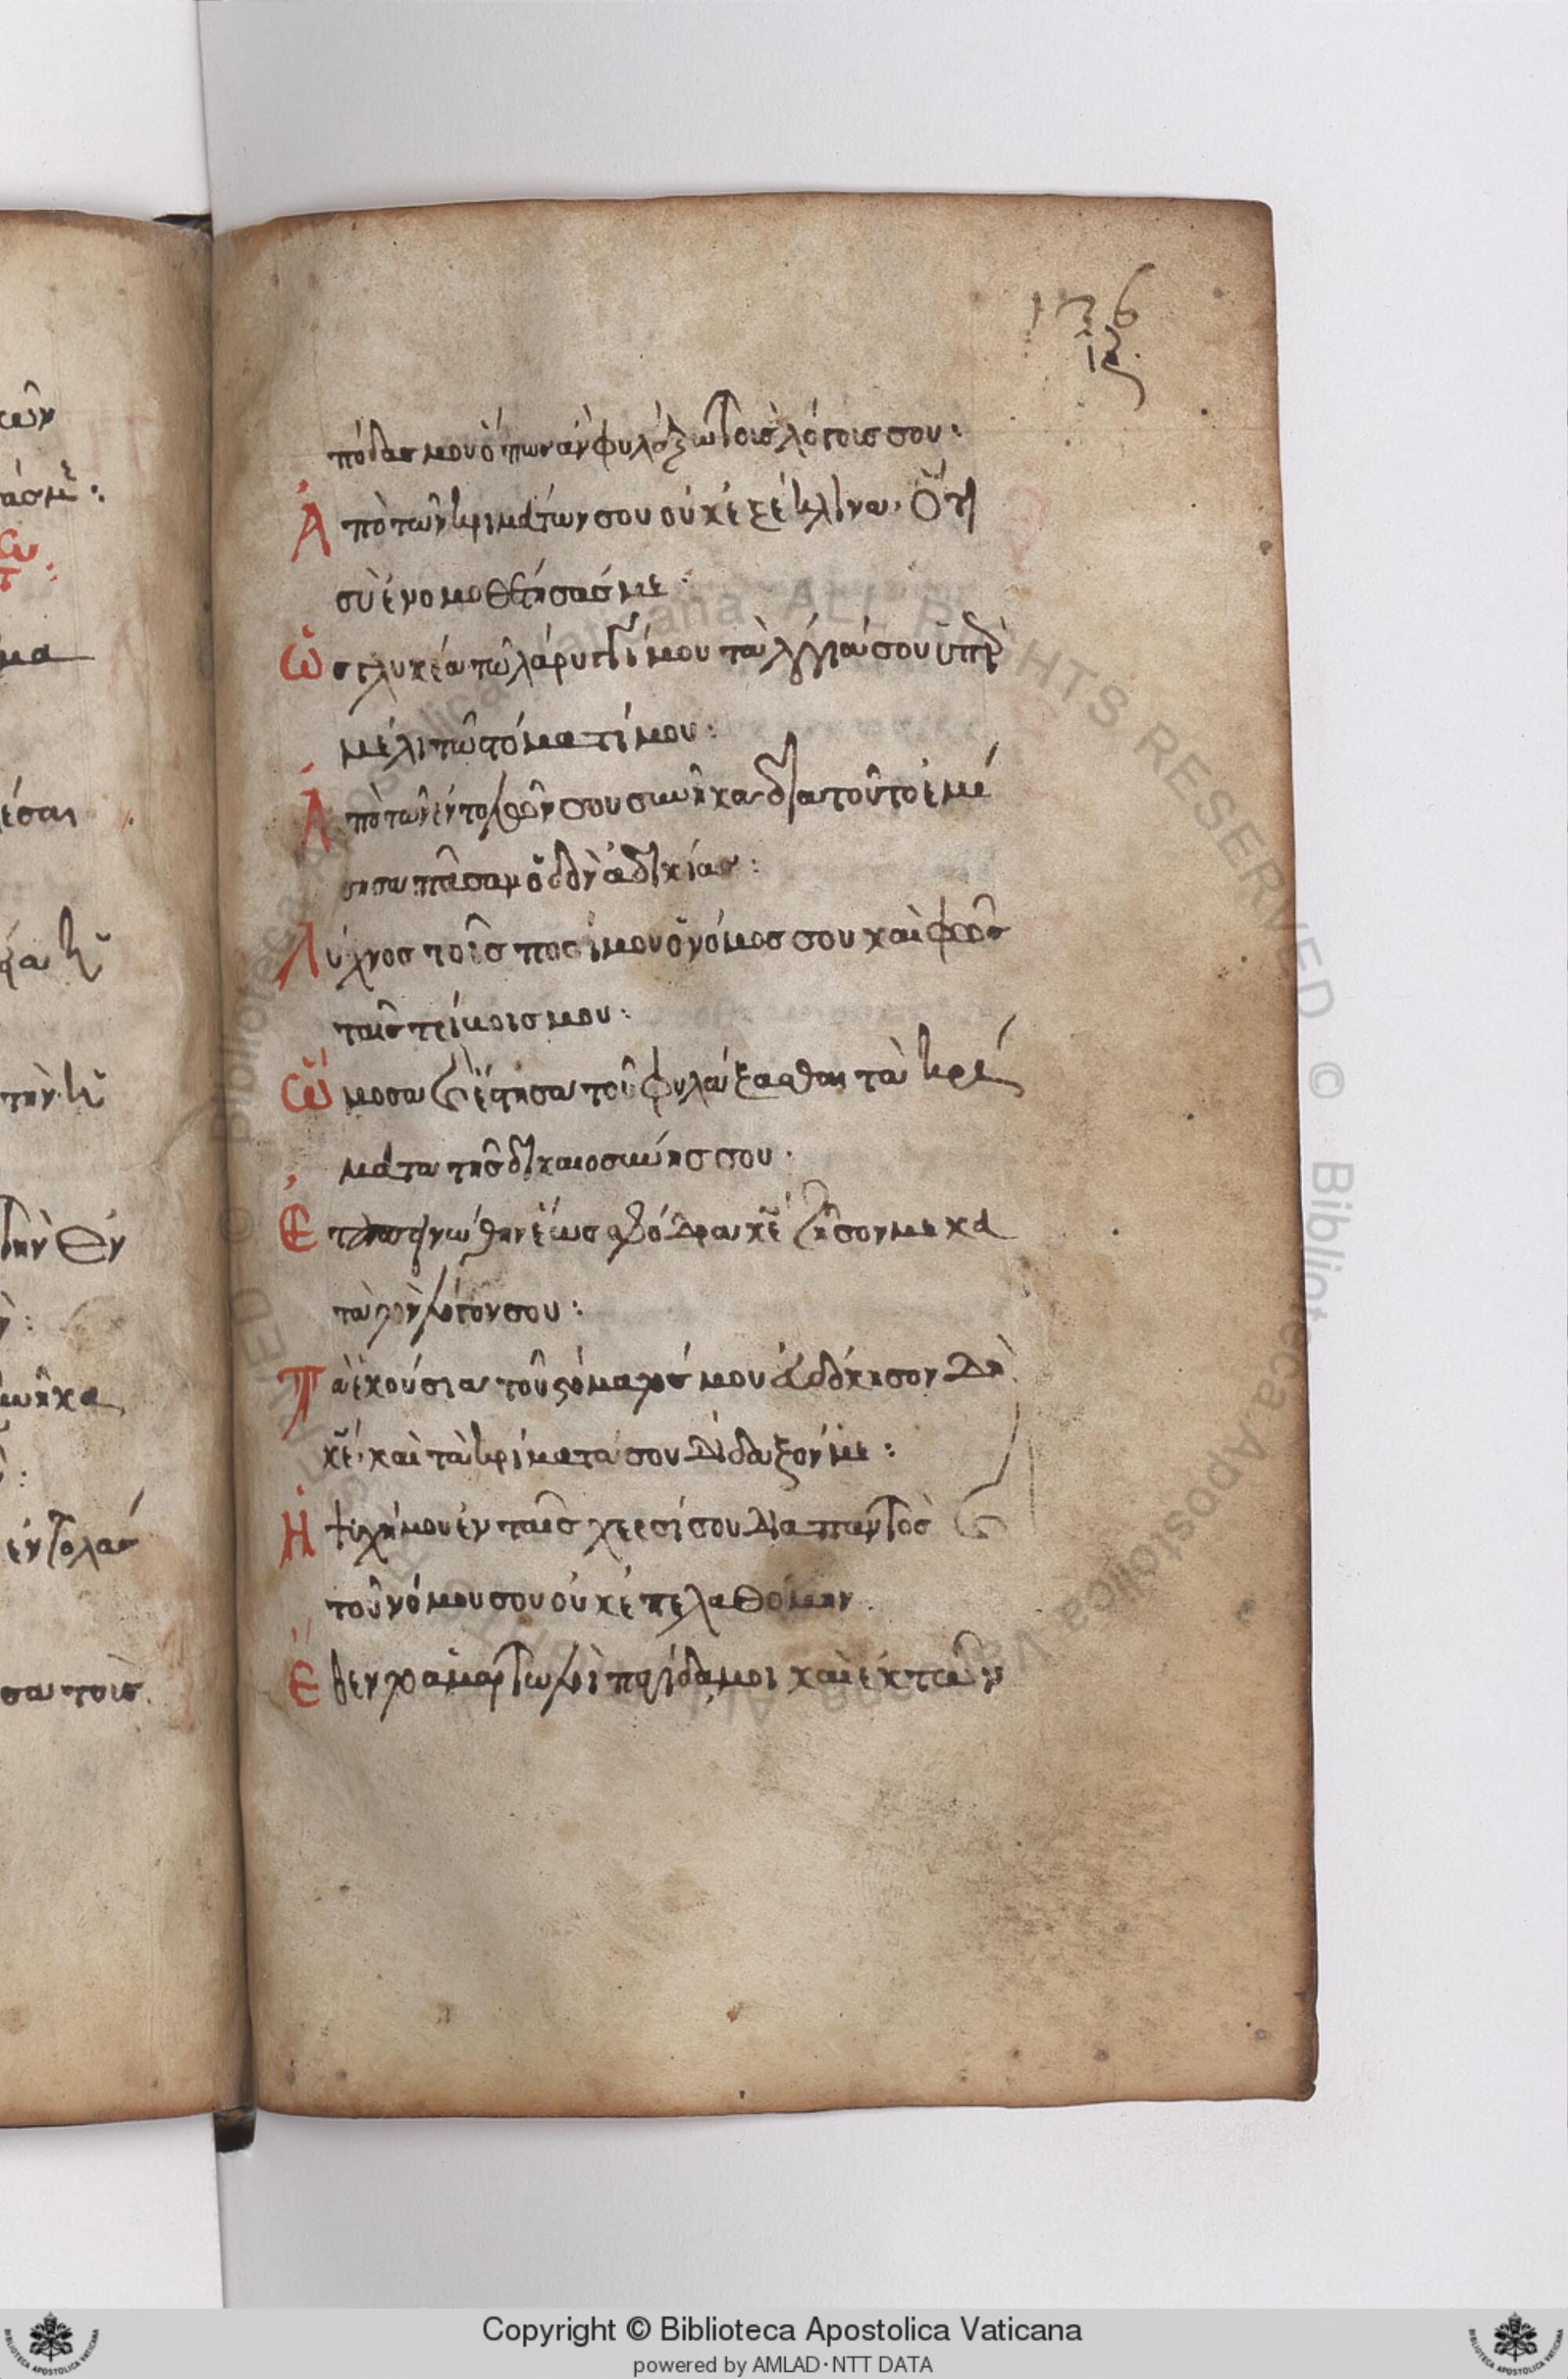 136
πόδας μου ὅπως ἂν φυλάξω τοὺς λόγους σου:
Ἀπὸ τῶν κριμάτων σου οὐκ ἐξέκλινα· Ὅτι
σὺ ἐνομοθέτησάς με·
Ὡς γλυκέα τῶ λάρυγγί μου τὰ λόγιά σου ὑπὲρ
μέλι τῶ στόματί μου:
Ἀπὸ τῶν ἐντολῶν σου συνῆκα διατοῦτο ἐμί
σησα πᾶσαν ὁδὸν ἀδικίας:
Λύχνος τοῖς ποσί μου ὁ νόμος σου καὶ φῶς
ταῖς τρίβοις μου:
Ὤμοσα καὶ ἔστησα τοῦ φυλάξασθαι τὰ κρί
ματα τῆς δικαιοσύνης σου·
Ἐταπεινώθην ἕως σφόδρα κε ζῆσόν με κα
τὰ τὸν λόγον σου:
Τὰ ἑκούσια τοῦ στόματός μου εὐδόκησον δὴ
κε· καὶ τὰ κρίματά σου δίδαξόν με:
Ἡ ψυχή μου ἐν ταῖς χερσί σου διαπαντὸς καὶ
τοῦ νόμου σου οὐκ ἐπελαθόμην.
Ἔθεντο ἁμαρτωλοὶ παγίδα μοι καὶ ἐκ τῶν
τῶν
άς με:
μα
έσαι
τὴν
συνῆκα
ἐντολάς
σα τοῖς
Copyright © Biblioteca Apostolica Vaticana
powered by AMLAD·NTT DATA